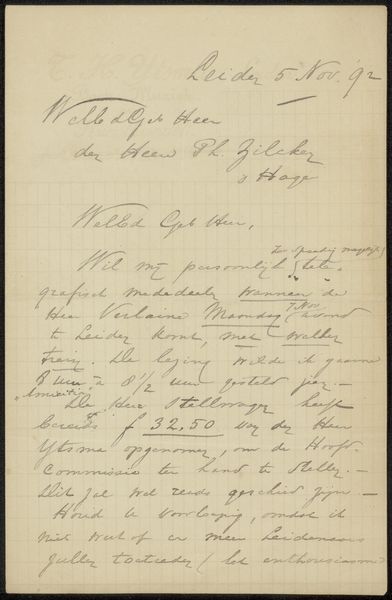 Leiden 5 Nov. '92
WelEdGeb Heer
den Heer Ph. Zilcken
's Hage
WelEd Geb Heer,
zoo spoedig mogelijk
Wil mij persoonlijk tele-
grafisch mededeelen wanneer de
7 Nov.
Heer Verlaine Maandag avond
te Leiden komt, met welken
trein. De lezing wilde ik gaarne
8 uur à 8 1/2 uur gesteld zien.—
"Amicitia"
De Heer Stellwagen heeft
bereids f 32.50 van den Heer
Ytsma opgenomen, om de Hoofd-
Commissie ter hand te stellen.—
Dit zal wel reeds geschied zijn.—
Houd de voorlopig, omdat ik
niet weet of er meer Leidenaars
zullen toetreden (het enthousiasme